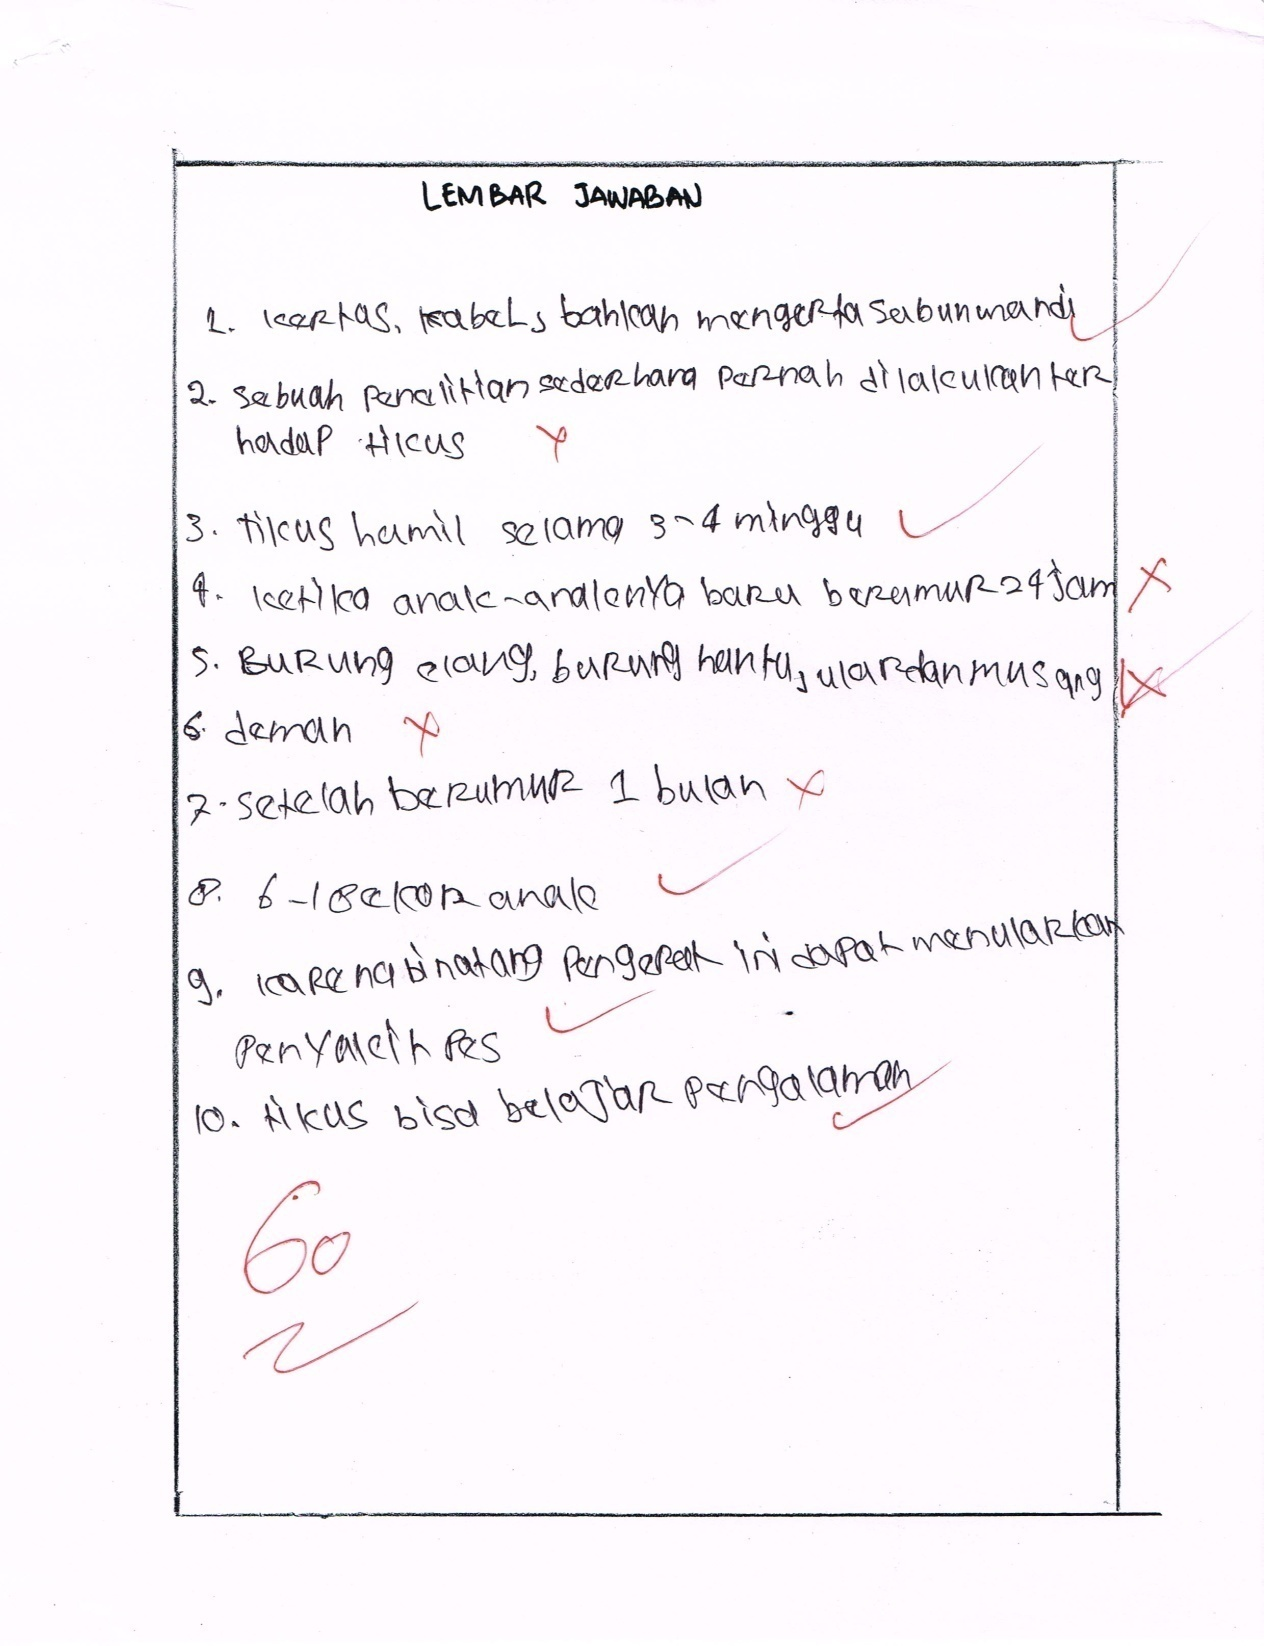 LEMBAR JAWABAN
1. kertas, kabel, bahkan mengerta sabun mandi
2. sebuah penelitian sederhana pernah dilakukan ter
hadap tikus
3. tikus hamil selama 3-4 minggu
4. ketika anak-anaknya baru berumur 24 jam
5. Burung elang, burung hantu, ular dan musang
6. demam
7. setelah berumur 1 bulan
8. 6-18 ekor anak
9. karena binatang pengerat ini dapat menularkan
penyakih pes
10. tikus bisa belajar pengalaman
60